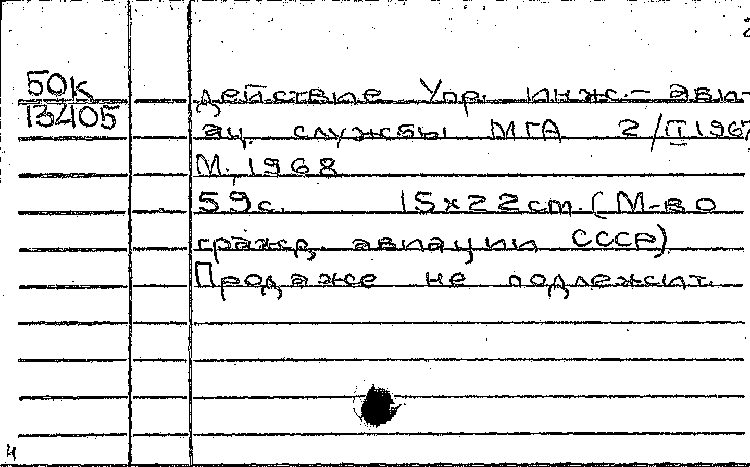 2
50К
13405
действие Упр. инж.- ави-
ац. службы МГА 2/II 1967
М., 1968
59с. 15х22см. (М-во
гражд. авиации СССР)
Продаже не подлежит.
Ч